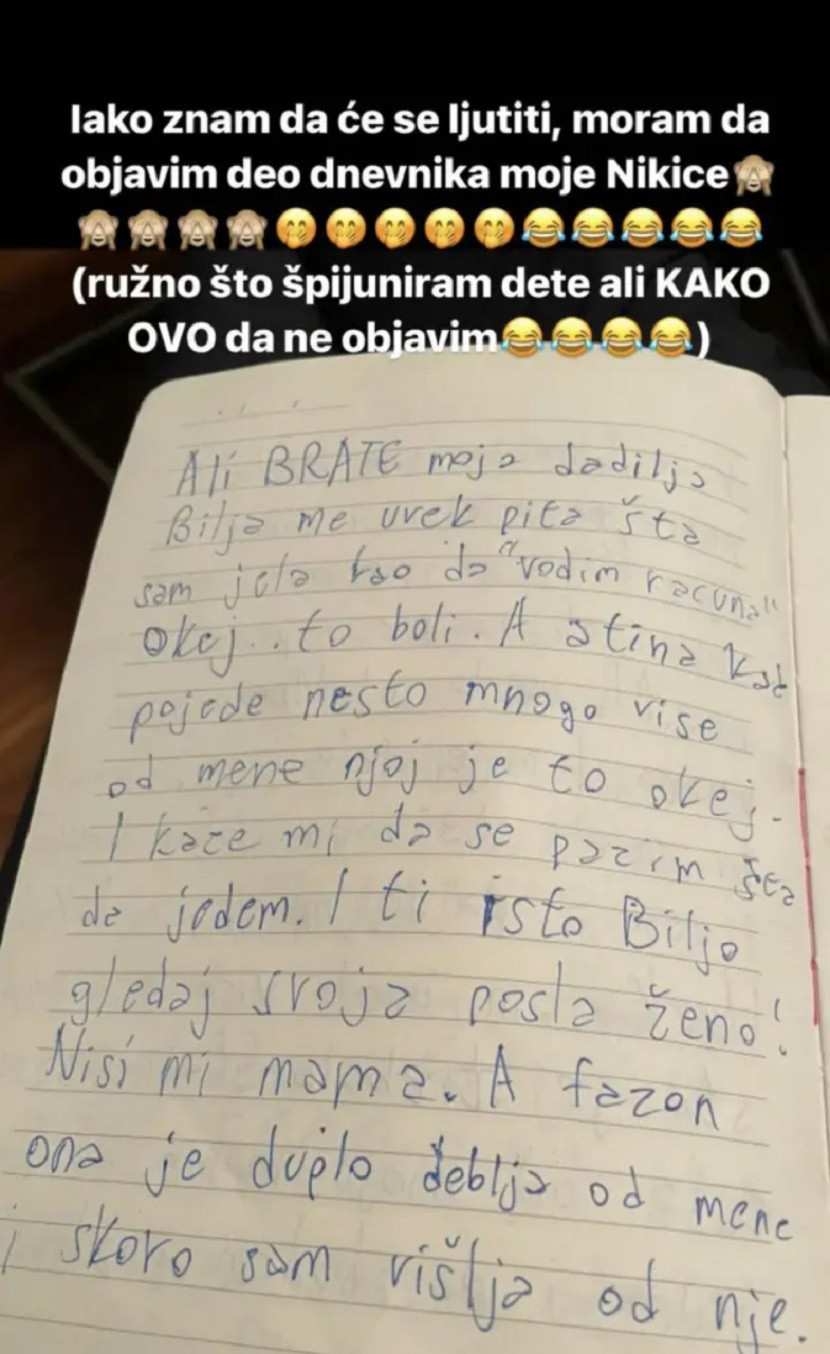 Iako znam da će se ljutiti, moram da
objavim deo dnevnika moje Nikice🙈
🙈🙈🙈🙈🤭🤭🤭🤭🤭😂😂😂😂😂
(ružno što špijuniram dete ali KAKO
OVO da ne objavim😂😂😂😂)
Ali BRATE moja dadilja
Bilja me uvek pita šta
sam jela kao da "vodim racuna"
okej.. to boli. A stina kad
pojede nesto mnogo vise
od mene njoj je to okej.
I kaze mi da se pazim šta
da jedem. I ti isto Biljo
gledaj svoja posla ženo!
Nisi mi mama. A fazon
ona je duplo deblja od mene
i skoro sam višlja od nje.